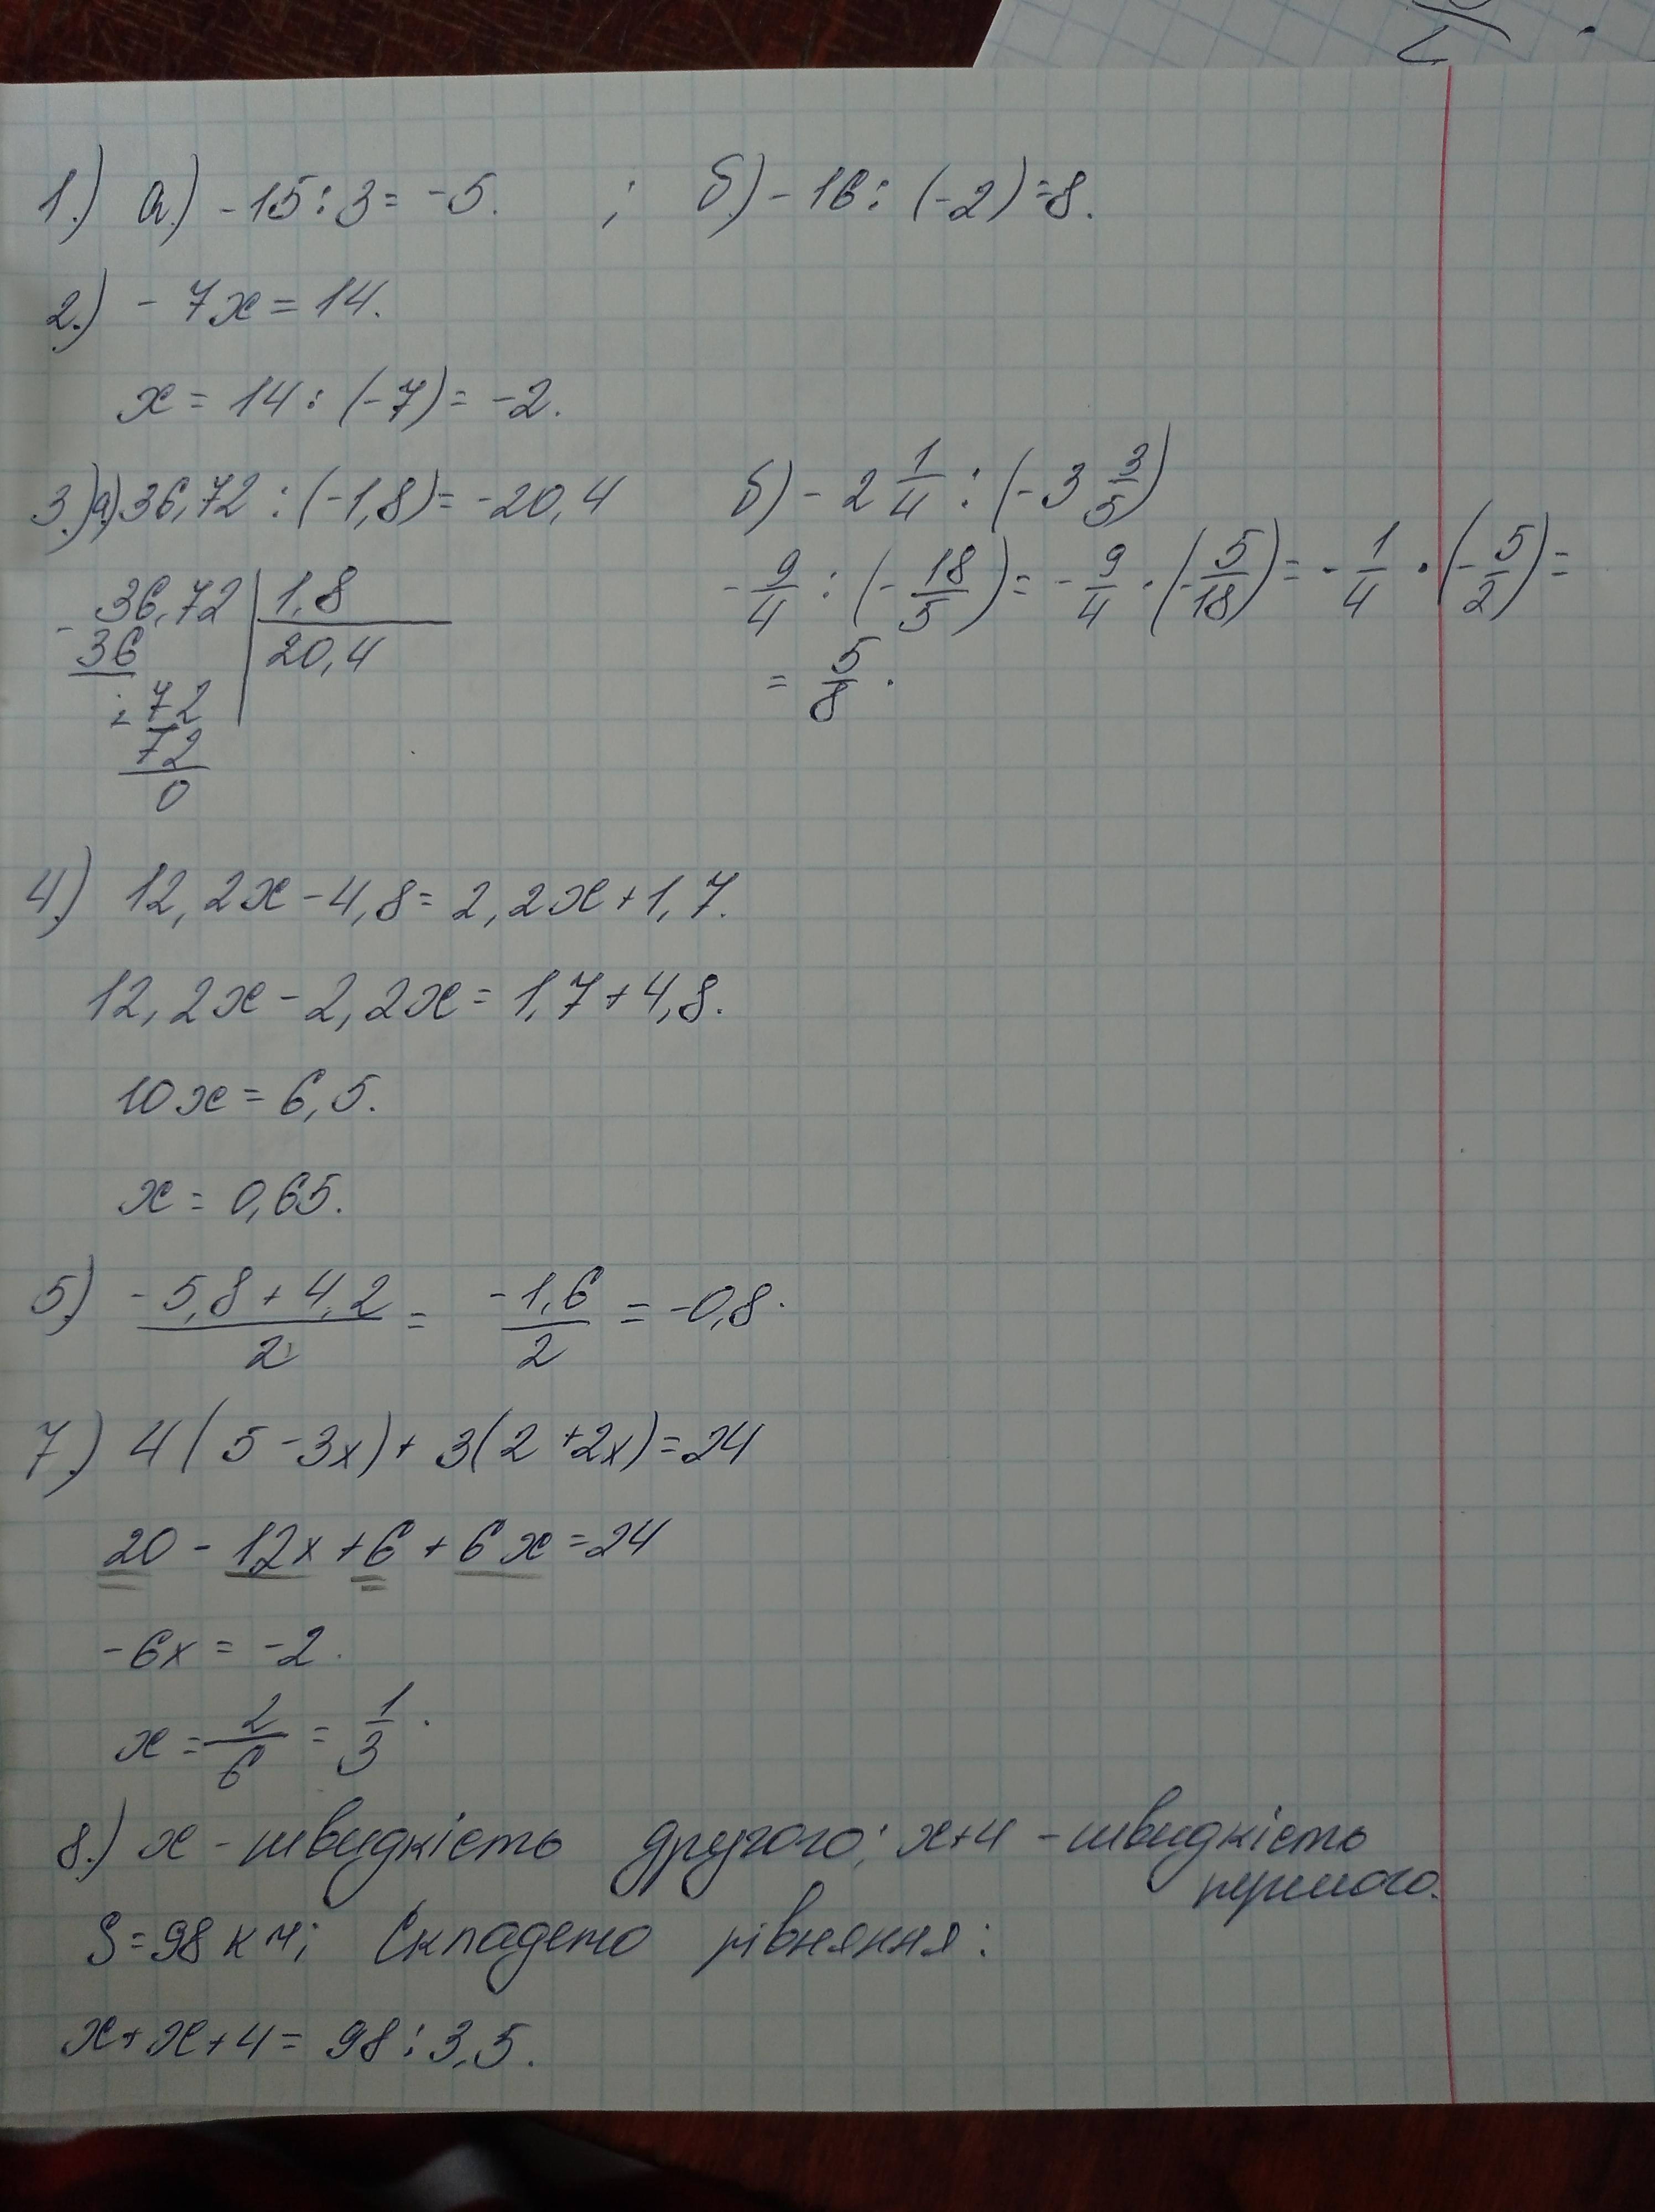 1.) а.) -15:3= -5. ; б.) -16: (-2)=8.
2.) - 7x = 14.
x = 14 : (-7) = -2.
3.) а) 36,72 : (-1,8)= -20,4
36,72 | 1,8
- 36 | 20,4
- 72
72
0
б) - 2 1/4 : (-3 3/5)
- 9/4 : (- 18/5) = - 9/4 · (- 5/18) = - 1/4 · (- 5/2) =
= 5/8 .
4.) 12,2x - 4,8 = 2,2x + 1,7.
12,2x - 2,2x = 1,7 + 4,8.
10x = 6,5.
x = 0,65.
5.) (-5,8 + 4,2)/2 = -1,6/2 = -0,8.
7.) 4( 5 - 3x) + 3(2 + 2x) = 24
20 - 12x + 6 + 6x = 24
-6x = -2.
x = 2/6 = 1/3 .
8.) x - швидкість другого; x+4 - швидкість
першого.
S = 98 км; Складемо рівняння:
x + x + 4 = 98 : 3,5.